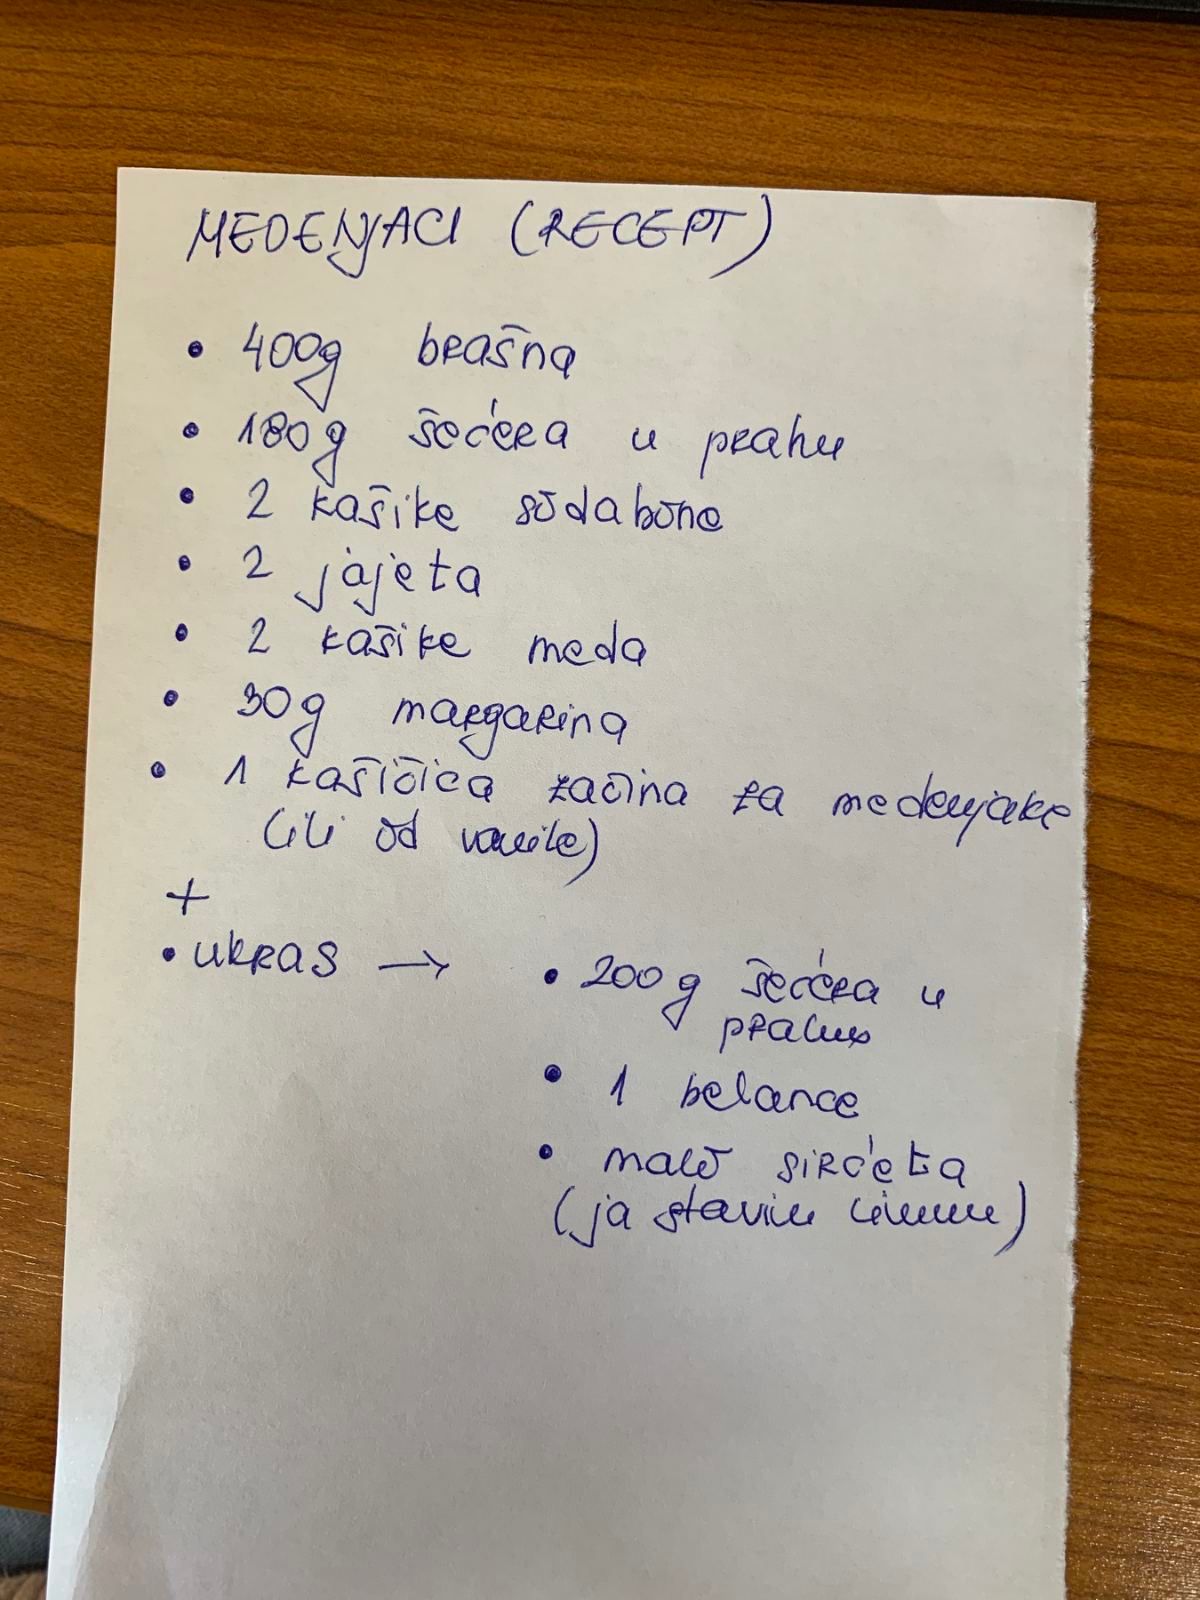 MEDENJACI (RECEPT)
• 400g brašna
• 180g šećera u prahu
• 2 kašike sodabone
• 2 jajeta
• 2 kašike meda
• 30g margarina
• 1 kašičica začina za medenjake
(ili od vanile)
+
• UKRAS →
• 200g šećera u
prahu
• 1 belance
• malo sirćeta
(ja stavim limun)